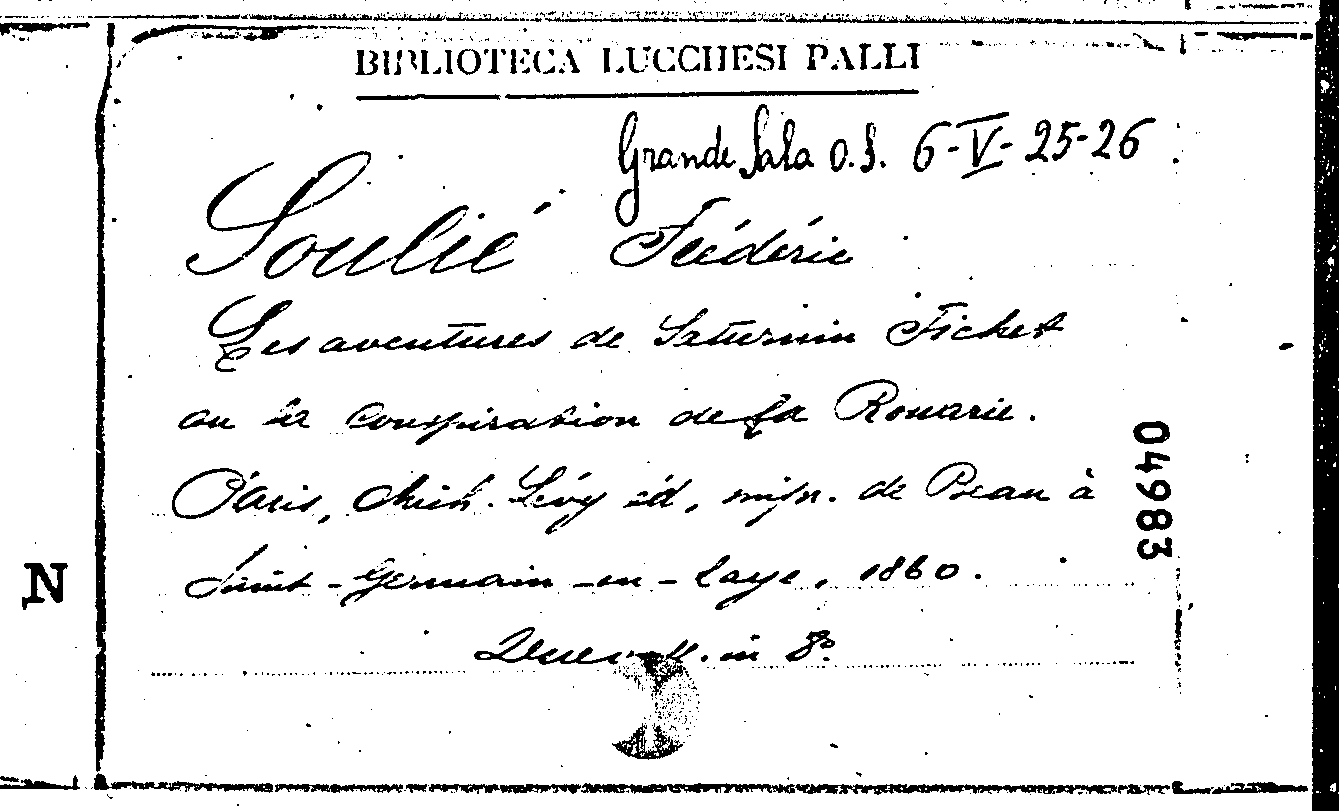 BIBLIOTECA LUCCHESI PALLI
Grande Sala O.S. 6-V-25-26
Soulié Frédéric
Les aventures de Saturnin Fichet
ou la conspiration de la Rouarie.
Paris, Mich. Lévy éd, imp. de Beau à
Saint-Germain-en-Laye, 1860.
Due voll. in 8º
04983
N